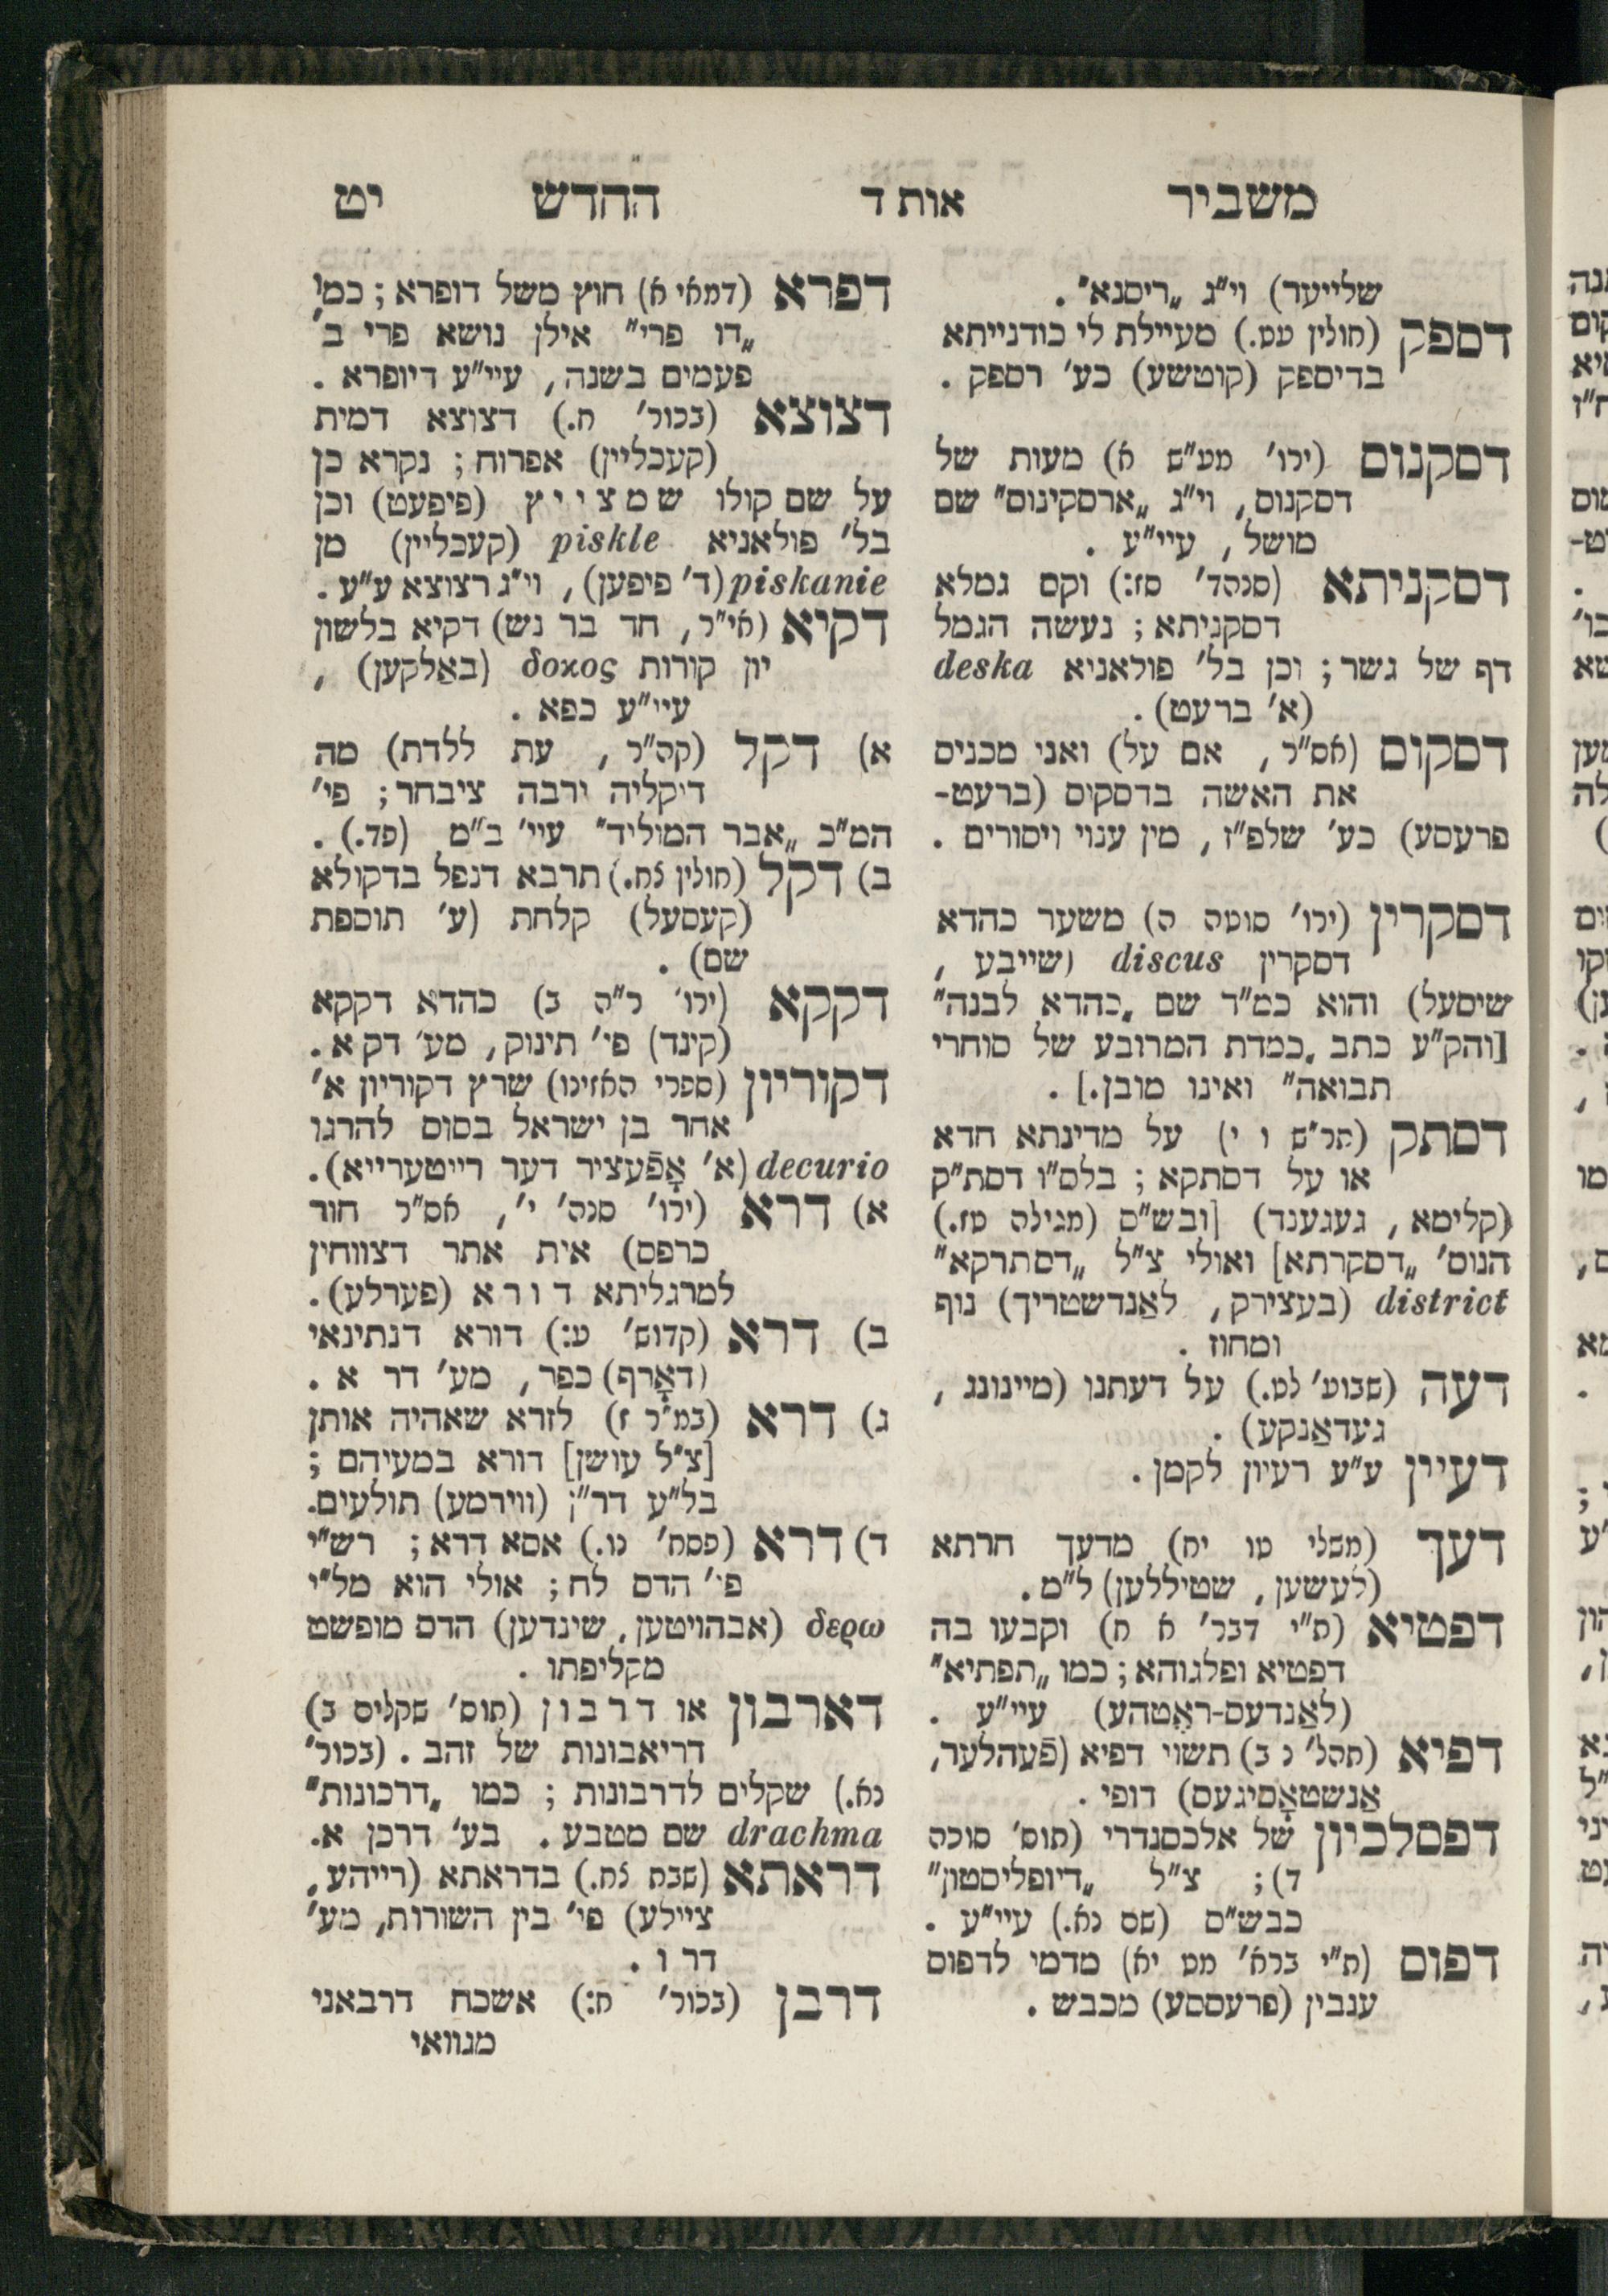 משביר אות ד ההדש יט
שלייער) וי״ג „ריסנא״ .
דספק (חולין עט.) מעיילת לי כודנייתא
בדיספק (קוטשע) כע׳ רספק .
דסקנוס (ירו׳ מע״ש א) מעות של
דסקנוס, וי״ג „ארסקינוס״ שם
מושל, עיי״ע .
דסקניתא (סנהד׳ סז:) וקם גמלא
דסקניתא ; נעשה הגמל
דף של גשר ; וכן בל׳ פולאניא deska
(א׳ ברעט).
דסקוס (אס״ר, אם על) ואני מכניס
את האשה בדסקוס (ברעט-
פרעסע) כע׳ שלפ״ז, מין ענוי ויסורים .
דסקרין (ירו׳ סוטה ה) משער כהדא
דסקרין discus (שייבע,
שיסעל) והוא כמ״ד שם „כהדא לבנה״
[והק״ע כתב „כמדת המרובע של סוחרי
תבואה״ ואינו מובן.] .
דסתק (תר״ש ו י) על מדינתא חדא
או על דסתקא ; בלס״ו דסת״ק
(קלימא, געגענד) [ובש״ס (מגילה טז.)
הנוס׳ „דסקרתא] ואולי צ״ל „דסתרקא״
district (בעצירק, לאַנדשטריך) נוף
ומחוז .
דעה (שבוע׳ לט.) על דעתנו (מיינונג,
געדאַנקע) .
דעיין ע״ע רעיון לקמן .
דעך (משלי טו יח) מדעך חרתא
(לעשען, שטיללען) ל״מ .
דפטיא (ת״י דבר׳ א ח) וקבעו בה
דפטיא ופלגוהא ; כמו „תפתיא״
(לאַנדעס-ראָטהע) עיי״ע .
דפיא (תהל׳ נ ב) תשוי דפיא (פֿעהלער,
אַנשטאָסיגעס) דופי .
דפסלכיון של אלכסנדרי (תוס׳ סוכה
ד) ; צ״ל „דיופליסטון״
כבש״ס (שם נא.) עיי״ע .
דפוס (ת״י ברא׳ מט יא) מדמי לדפוס
ענבין (פרעססע) מכבש .
דפרא (דמאי א) חוץ משל דופרא ; כמו
„דו פרי״ אילן נושא פרי ב׳
פעמים בשנה, עיי״ע דיופרא .
דצוצא (בכור׳ ח.) דצוצא דמית
(קעכליין) אפרוח ; נקרא כן
על שם קולו שמצוייץ (פיפעט) וכן
בל׳ פולאניא piskle (קעכליין) מן
piskanie (ד׳ פיפען), וי״ג רצוצא ע״ע .
דקיא (אי״ר, חד בר נש) דקיא בלשון
יון קורות δοκος (באַלקען),
עיי״ע כפא .
א) דקל (קה״ר, עת ללדת) מה
דיקליה ירבה ציבחר ; פי׳
המ״כ „אבר המוליד״ עיי׳ ב״מ (פד.) .
ב) דקל (חולין לח.) תרבא דנפל בדקולא
(קעסעל) קלחת (ע׳ תוספת
שם) .
דקקא (ירו׳ ר״ה ב) כהדא דקקא
(קינד) פי׳ תינוק, מע׳ דקא .
דקוריון (ספרי האזינו) שרץ דקוריון א׳
אחר בן ישראל בסוס להרגו
decurio (א׳ אָפֿעציר דער רייטערייא).
א) דרא (ירו׳ סנה׳ י׳, אס״ר חור
כרפס) אית אתר דצווחין
למרגליתא דורא (פערלע).
ב) דרא (קדוש׳ ע:) דורא דנתינאי
(דאָרף) כפר, מע׳ דר א .
ג) דרא (במ״ר ז) לזרא שאהיה אותן
[צ״ל עושן] דורא במעיהם ;
בל״ע דר״ן (ווירמע) תולעים.
ד) דרא (פסח׳ נו.) אסא דרא ; רש״י
פי׳ הדס לח ; אולי הוא מל״י
δερω (אבהויטען, שינדען) הדס מופשט
מקליפתו .
דארבון או דרבון (תוס׳ שקלים ב)
דריאבונות של זהב . (בכור׳
נא.) שקלים לדרבונות ; כמו „דרכונות״
drachma שם מטבע . בע׳ דרכן א.
דראתא (שבת לח.) בדראתא (רייהע,
ציילע) פי׳ בין השורות, מע׳
דר ו .
דרבן (בכור׳ ח:) אשכח דרבאני
מגוואי